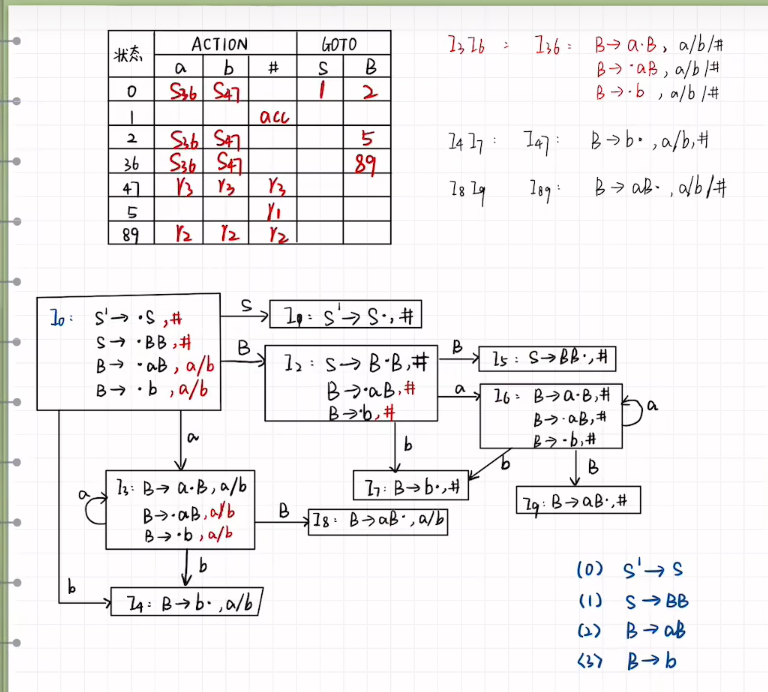 状态 ACTION GOTO
a b # S B
0 S36 S47 1 2
1 acc
2 S36 S47 5
36 S36 S47 89
47 r3 r3 r3
5 r1
89 r2 r2 r2
I3I6: I36: B→a·B, a/b/#
B→·aB, a/b/#
B→·b, a/b/#
I4I7: I47: B→b·, a/b,#
I8I9 I89: B→aB·, a/b/#
I0: S'→·S,#
S→·BB,#
B→·aB, a/b
B→·b, a/b
S
I1: S'→S·,#
B
I2: S→B·B,#
B→·aB,#
B→·b,#
B
I5: S→BB·,#
a
I6: B→a·B,#
B→·aB,#
B→·b,#
a
a
b
b
B
I7: B→b·,#
I9: B→aB·,#
a
I3: B→a·B, a/b
B→·aB, a/b
B→·b, a/b
B
I8: B→aB·, a/b
b
b
I4: B→b·, a/b
(0) S'→S
(1) S→BB
(2) B→aB
(3) B→b